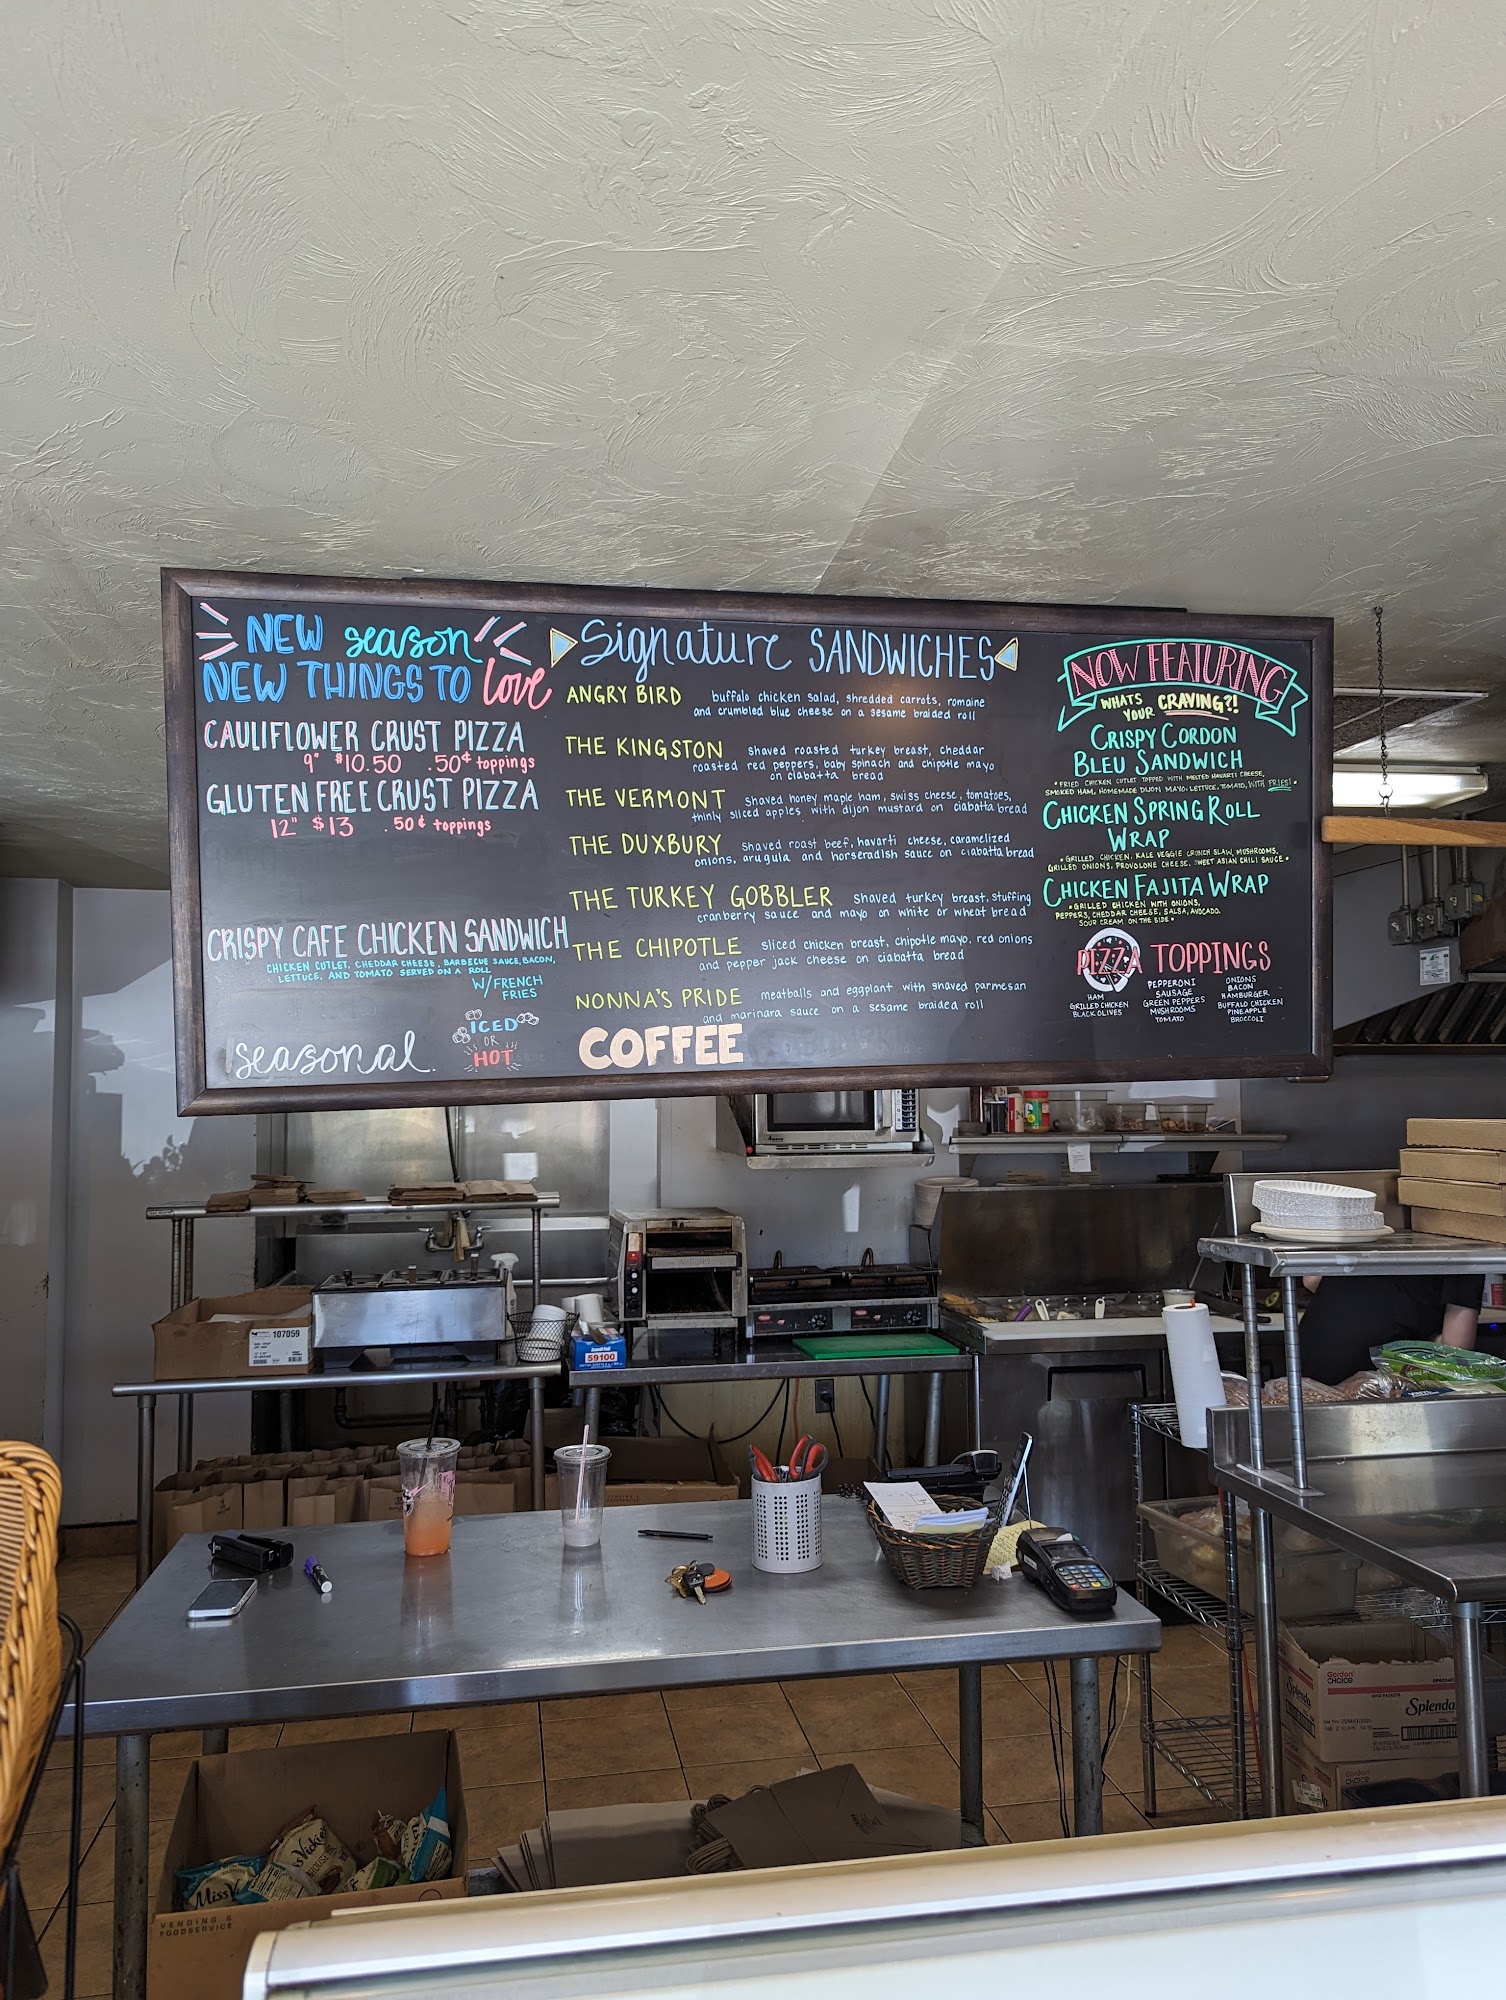 NEW season
NEW THINGS TO love
CAULIFLOWER CRUST PIZZA
9" $10.50 .50¢ toppings
GLUTEN FREE CRUST PIZZA
12" $13 .50¢ toppings
CRISPY CAFE CHICKEN SANDWICH
CHICKEN CUTLET, CHEDDAR CHEESE, BARBECUE SAUCE, BACON,
LETTUCE, AND TOMATO SERVED ON A ROLL
W/FRENCH
FRIES
seasonal
ICED
OR
HOT
COFFEE
Signature SANDWICHES
ANGRY BIRD buffalo chicken salad, shredded carrots, romaine
and crumbled blue cheese on a sesame braided roll
THE KINGSTON shaved roasted turkey breast, cheddar
roasted red peppers, baby spinach and chipotle mayo
on ciabatta bread
THE VERMONT shaved honey maple ham, swiss cheese, tomatoes,
thinly sliced apples with dijon mustard on ciabatta bread
THE DUXBURY shaved roast beef, havarti cheese, caramelized
onions, arugula and horseradish sauce on ciabatta bread
THE TURKEY GOBBLER shaved turkey breast, stuffing
cranberry sauce and mayo on white or wheat bread
THE CHIPOTLE sliced chicken breast, chipotle mayo, red onions
and pepper jack cheese on ciabatta bread
NONNA'S PRIDE meatballs and eggplant with shaved parmesan
and marinara sauce on a sesame braided roll
NOW FEATURING
WHATS
YOUR CRAVING?!
CRISPY CORDON
BLEU SANDWICH
• FRIED CHICKEN CUTLET TOPPED WITH MELTED HAVARTI CHEESE,
SMOKED HAM, HOMEMADE DIJON MAYO, LETTUCE, TOMATO, WITH FRIES! •
CHICKEN SPRING ROLL
WRAP
• GRILLED CHICKEN, KALE VEGGIE CRUNCH SLAW, MUSHROOMS,
GRILLED ONIONS, PROVOLONE CHEESE, SWEET ASIAN CHILI SAUCE •
CHICKEN FAJITA WRAP
• GRILLED CHICKEN WITH ONIONS,
PEPPERS, CHEDDAR CHEESE, SALSA, AVOCADO.
SOUR CREAM ON THE SIDE •
PIZZA TOPPINGS
HAM
GRILLED CHICKEN
BLACK OLIVES
PEPPERONI
SAUSAGE
GREEN PEPPERS
MUSHROOMS
TOMATO
ONIONS
BACON
HAMBURGER
BUFFALO CHICKEN
PINEAPPLE
BROCCOLI
107059
59100
Gordon
CHOICE
Splenda
Splenda
Gordon
CHOICE
Miss Vickie
MissV
VENDING &
FOODSERVICE